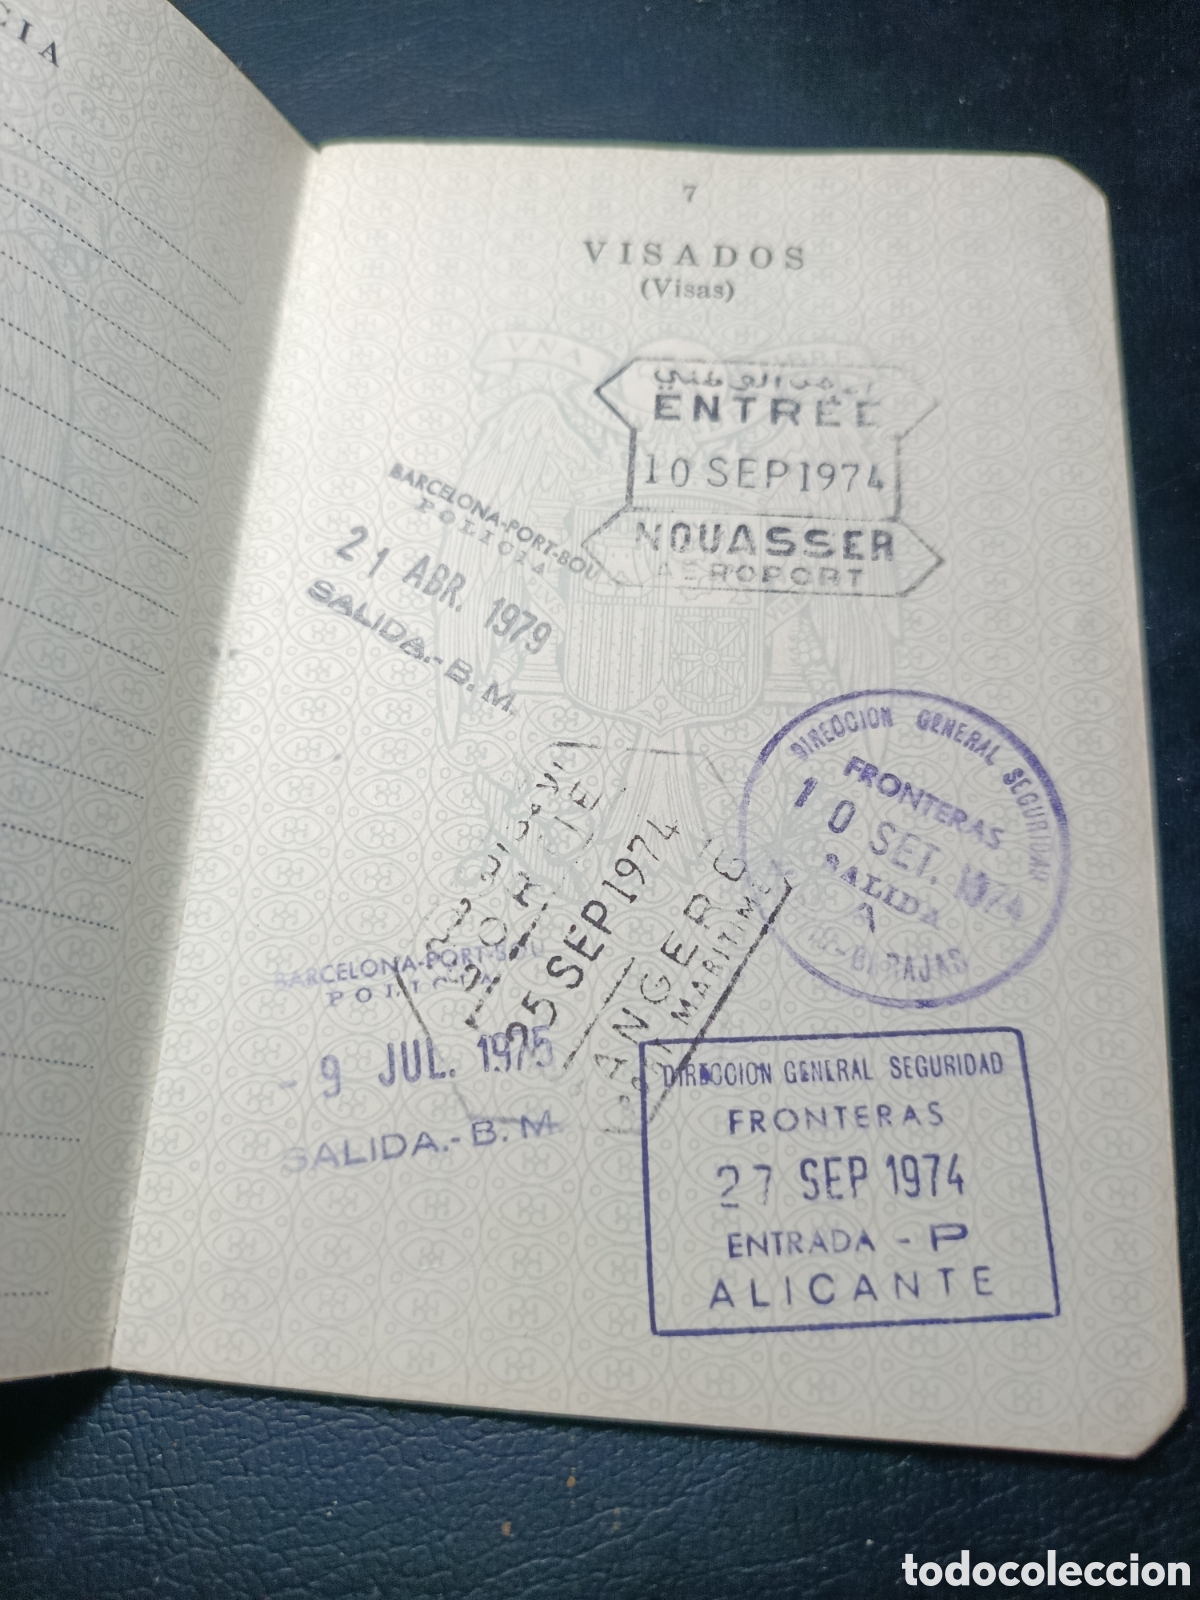 CIA
BRE
7
VISADOS
(Visas)
UNA
ENTRÉE
10 SEP 1974
NOUASSER
AEROPORT
BARCELONA-PORT-BOU
POLICIA
21 ABR. 1979
SALIDA.-B.M.
DIRECCION GENERAL SEGURIDAD
FRONTERAS
10 SET. 1974
SALIDA
A
25 SEP 1974
TANGER
MARITIME
BARCELONA-PORT-BOU
POLICIA
- 9 JUL. 1975
SALIDA.-B.M.
DIRECCION GENERAL SEGURIDAD
FRONTERAS
27 SEP 1974
ENTRADA - P
ALICANTE
todocoleccion